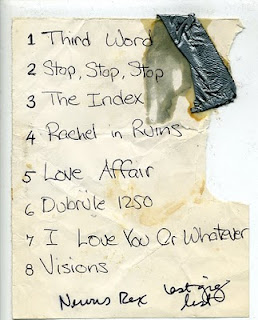 1 Third Word
2 Stop, Stop, Stop
3 The Index
4 Rachel in Ruins
5 Love Affair
6 Dubrule 1250
7 I Love You Or Whatever
8 Visions
Rex last gig
list